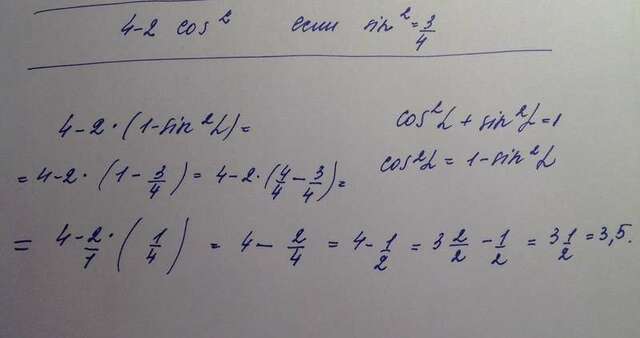 4-2 cos² если sin²=3/4
4-2·(1-sin²α)=
cos²α+sin²α=1
=4-2·(1-3/4)=4-2·(4/4-3/4)=
cos²α=1-sin²α
=4-2/1·(1/4)=4-2/4=4-1/2=3 2/2-1/2=3 1/2=3,5.